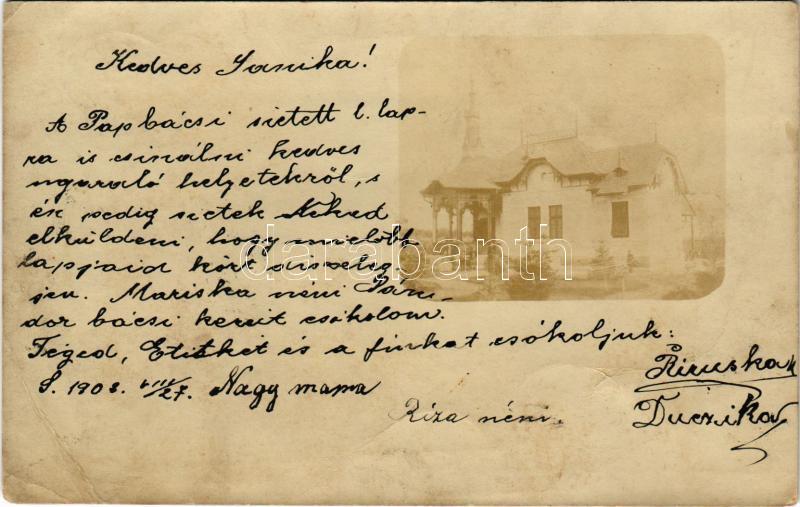 Kedves Sanika!
A Pap bácsi sietett l. lap-
ra is csinálni kedves
nyaraló helyetekről, s
én pedig sietek Neked
elküldeni, hogy mielőbb
lapjaid közt díszeleg-
jen. Mariska néni Sán-
dor bácsi kezeit csókolom.
Téged, Etiskét és a fiukat csókoljuk:
S. 1903. VIII/27. Nagy mama
Riza néni.
Piruska
Duczika
darabanth